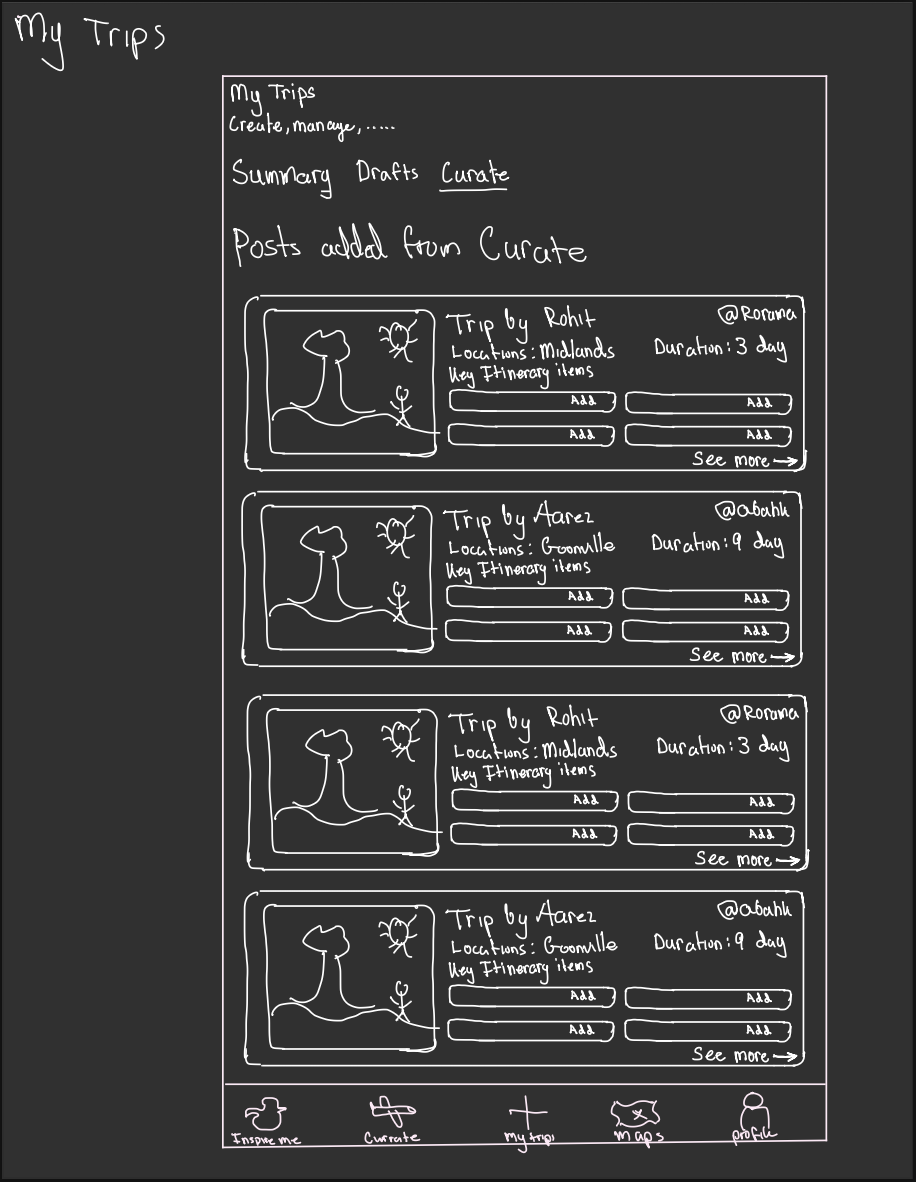 My Trips
My Trips
Create, manage, .....
Summary Drafts Curate
Posts added from Curate
Trip by Rohit @Rorama
Locations: Midlands Duration: 3 day
Key Itinerary items
Add Add
Add Add
See more →
Trip by Aarez @abahh
Locations: Goonville Duration: 9 day
Key Itinerary items
Add Add
Add Add
See more →
Trip by Rohit @Rorama
Locations: Midlands Duration: 3 day
Key Itinerary items
Add Add
Add Add
See more →
Trip by Aarez @abahh
Locations: Goonville Duration: 9 day
Key Itinerary items
Add Add
Add Add
See more →
Inspire me Currate My trips Maps profile